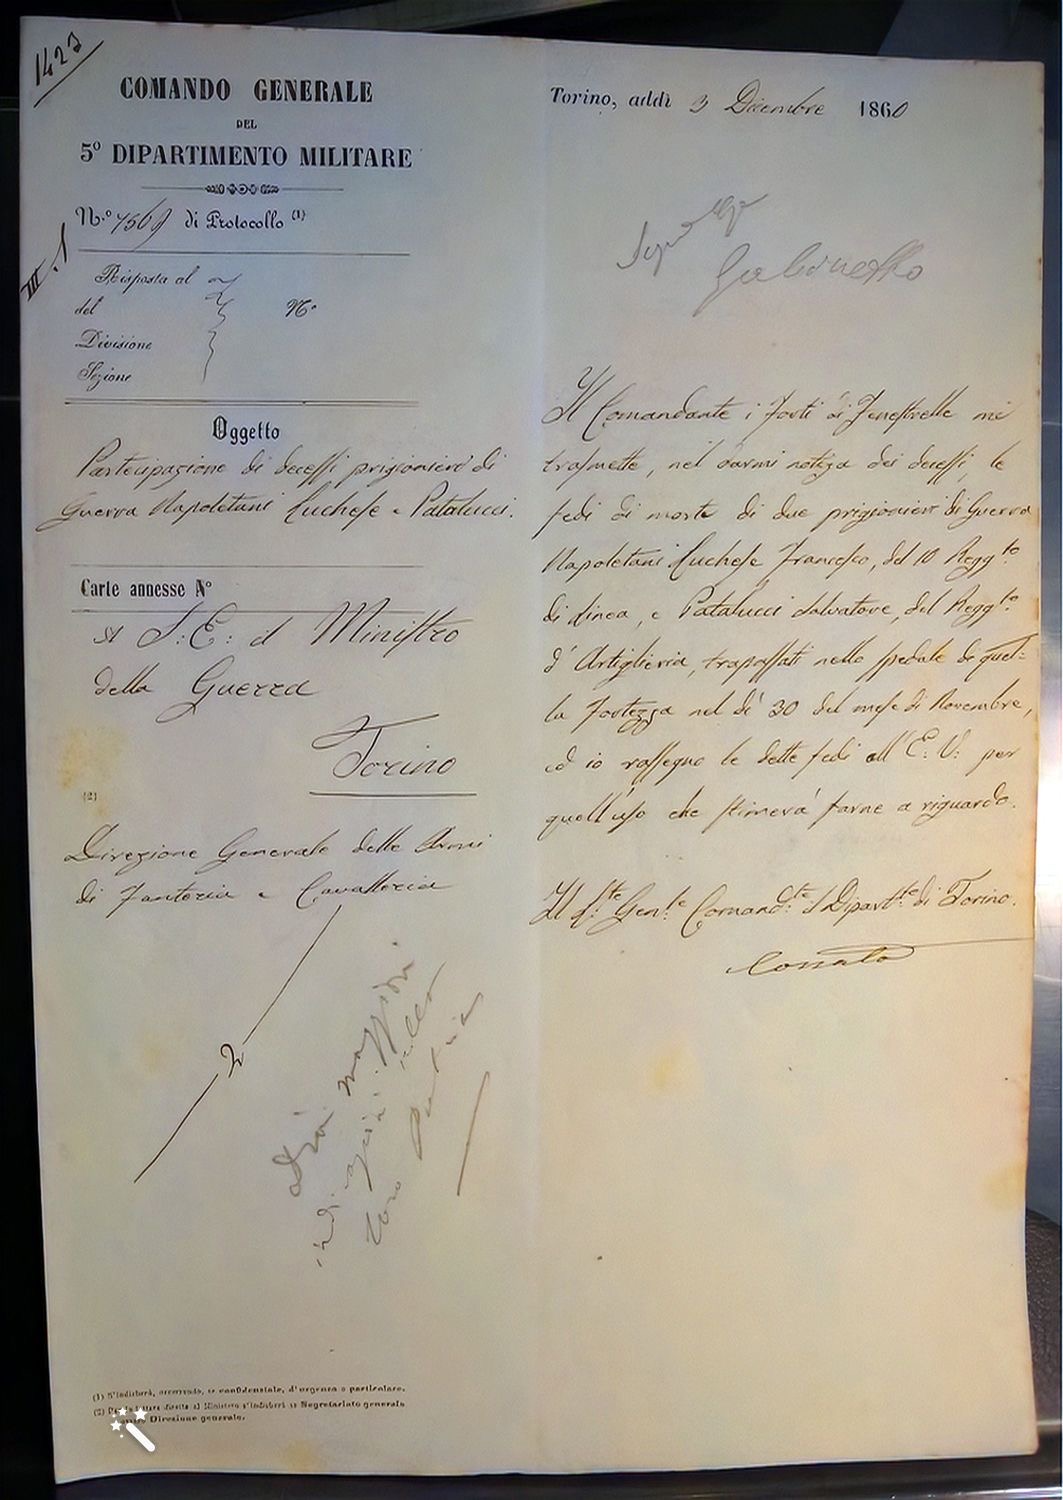 1423
COMANDO GENERALE
DEL
5º DIPARTIMENTO MILITARE
N.º 7569 di Protocollo (1)
III. 1
Risposta al
del Nº
Divisione
Sezione
Oggetto
Partecipazione di decessi prigionieri di
Guerra Napoletani Luchese e Patalucci.
Carte annesse Nº
A S: E: il Ministro
della Guerra
Torino
(2)
Direzione Generale delle Armi
di Fanteria e Cavalleria
2
maggiori
loro
(1) S'indicherà, occorrendo, se confidenziale, d'urgenza o particolare.
(2) al Ministero s'indicherà se Segretariato generale
Direzione generale.
Torino, addì 3 Dicembre 1860
Gabinetto
Il Comandante i Forti di Fenestrelle mi
trasmette, nel darmi notizia dei decessi, le
fedi di morte di due prigionieri di Guerra
Napoletani Luchese Francesco, del 10 Regg.to
di Linea, e Patalucci Salvatore, del Regg.to
d'Artiglieria, trapassati nello spedale di quel=
la Fortezza nel dì 30 del mese di Novembre,
ed io rassegno le dette fedi all'E: V: per
quell'uso che stimerà farne a riguardo.
Il L:te Gen:le Comand:te il Dipart:to di Torino.